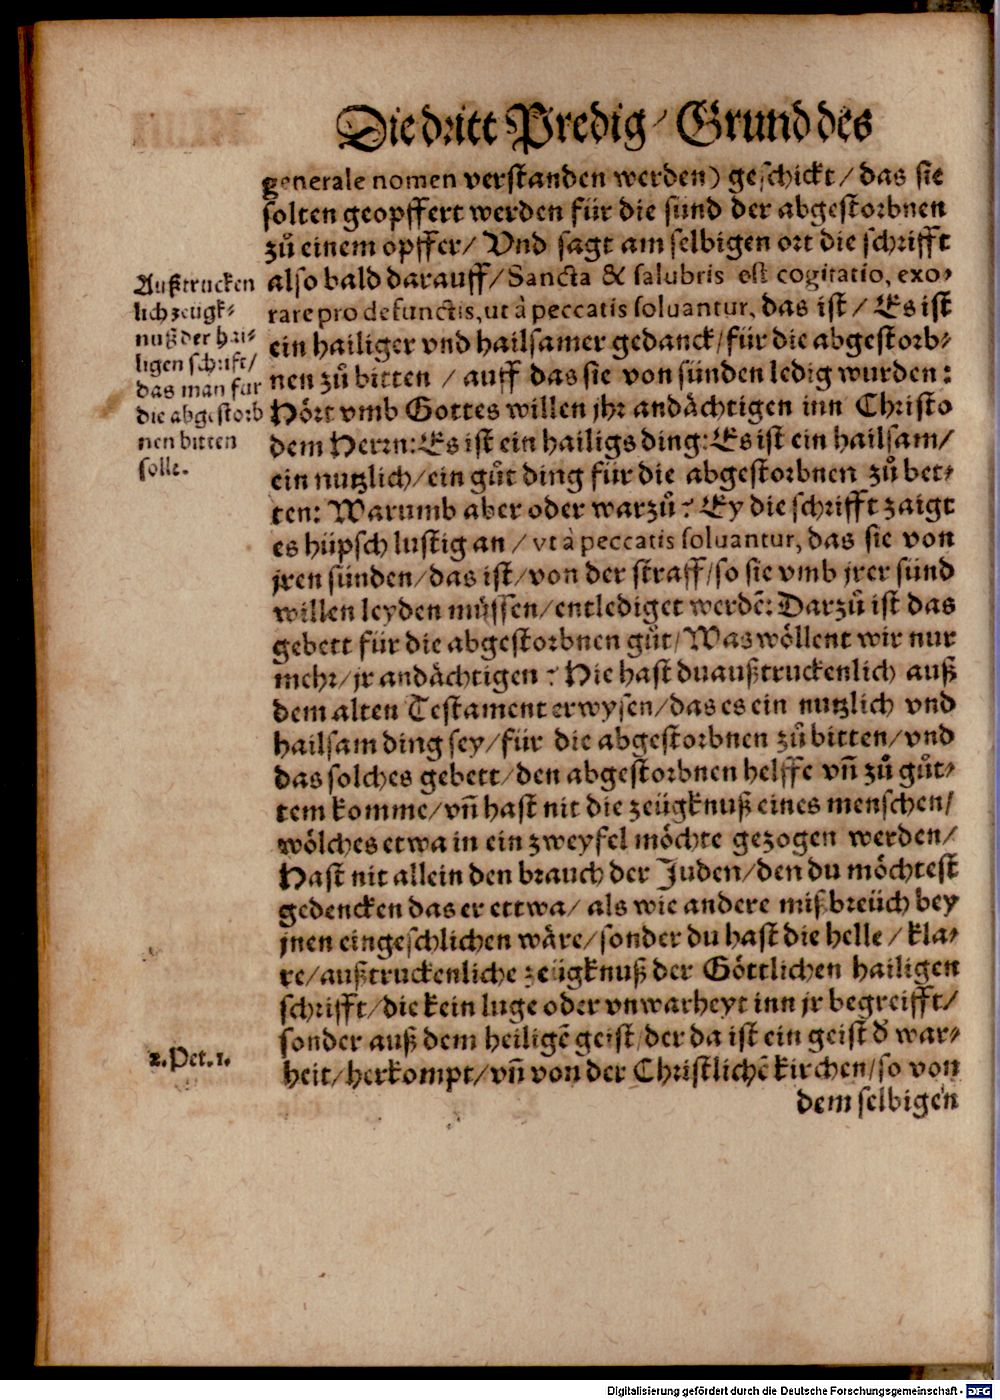 Die dritt Predig/ Grund des
generale nomen verstanden werden) geschickt/ das sie
solten geopffert werden für die sünd der abgestorbnen
zů einem opffer/ Vnd sagt am selbigen ort die schrifft
also bald darauff/ Sancta & salubris est cogitatio, exo-
rare pro defunctis, ut à peccatis soluantur, das ist/ Es ist
ein hailiger vnd hailsamer gedanck/ für die abgestorb-
nen zů bitten / auff das sie von sünden ledig wurden:
Hört vmb Gottes willen jhr andächtigen inn Christo
dem Herrn: Es ist ein hailigs ding: Es ist ein hailsam/
ein nutzlich/ ein gůt ding für die abgestorbnen zů bet-
ten: Warumb aber oder warzů? Ey die schrifft zaigt
es hüpsch lustig an / vt à peccatis soluantur, das sie von
jren sünden/ das ist/ von der straff/ so sie vmb jrer sünd
willen leyden müssen/ entlediget werdē: Darzů ist das
gebett für die abgestorbnen gůt/ Was wöllent wir nur
mehr/ jr andächtigen? Hie hast du außtruckenlich auß
dem alten Testament erwysen/ das es ein nutzlich vnd
hailsam ding sey/ für die abgestorbnen zů bitten/ vnd
das solches gebett/ den abgestorbnen helffe vn̄ zů gůt-
tem komme/ vn̄ hast nit die zeügknuß eines menschen/
wölches etwa in ein zweyfel möchte gezogen werden/
Hast nit allein den brauch der Juden/ den du möchtest
gedencken das er ettwa/ als wie andere mißbreüch bey
jnen eingeschlichen wäre/ sonder du hast die helle / kla-
re/ außtruckenliche zeügknuß der Göttlichen hailigen
schrifft/ die kein luge oder vnwarheyt inn jr begreifft/
sonder auß dem heiligē geist/ der da ist ein geist d̄ war-
heit/ herkompt/ vn̄ von der Christlichē kirchen/ so von
dem selbigen
Außtrucken
lich zeügk-
nuß der hai-
ligen schrift/
das man für
die abgestorb
nen bitten
solle.
2. Pet. 1.
Digitalisierung gefördert durch die Deutsche Forschungsgemeinschaft - DFG